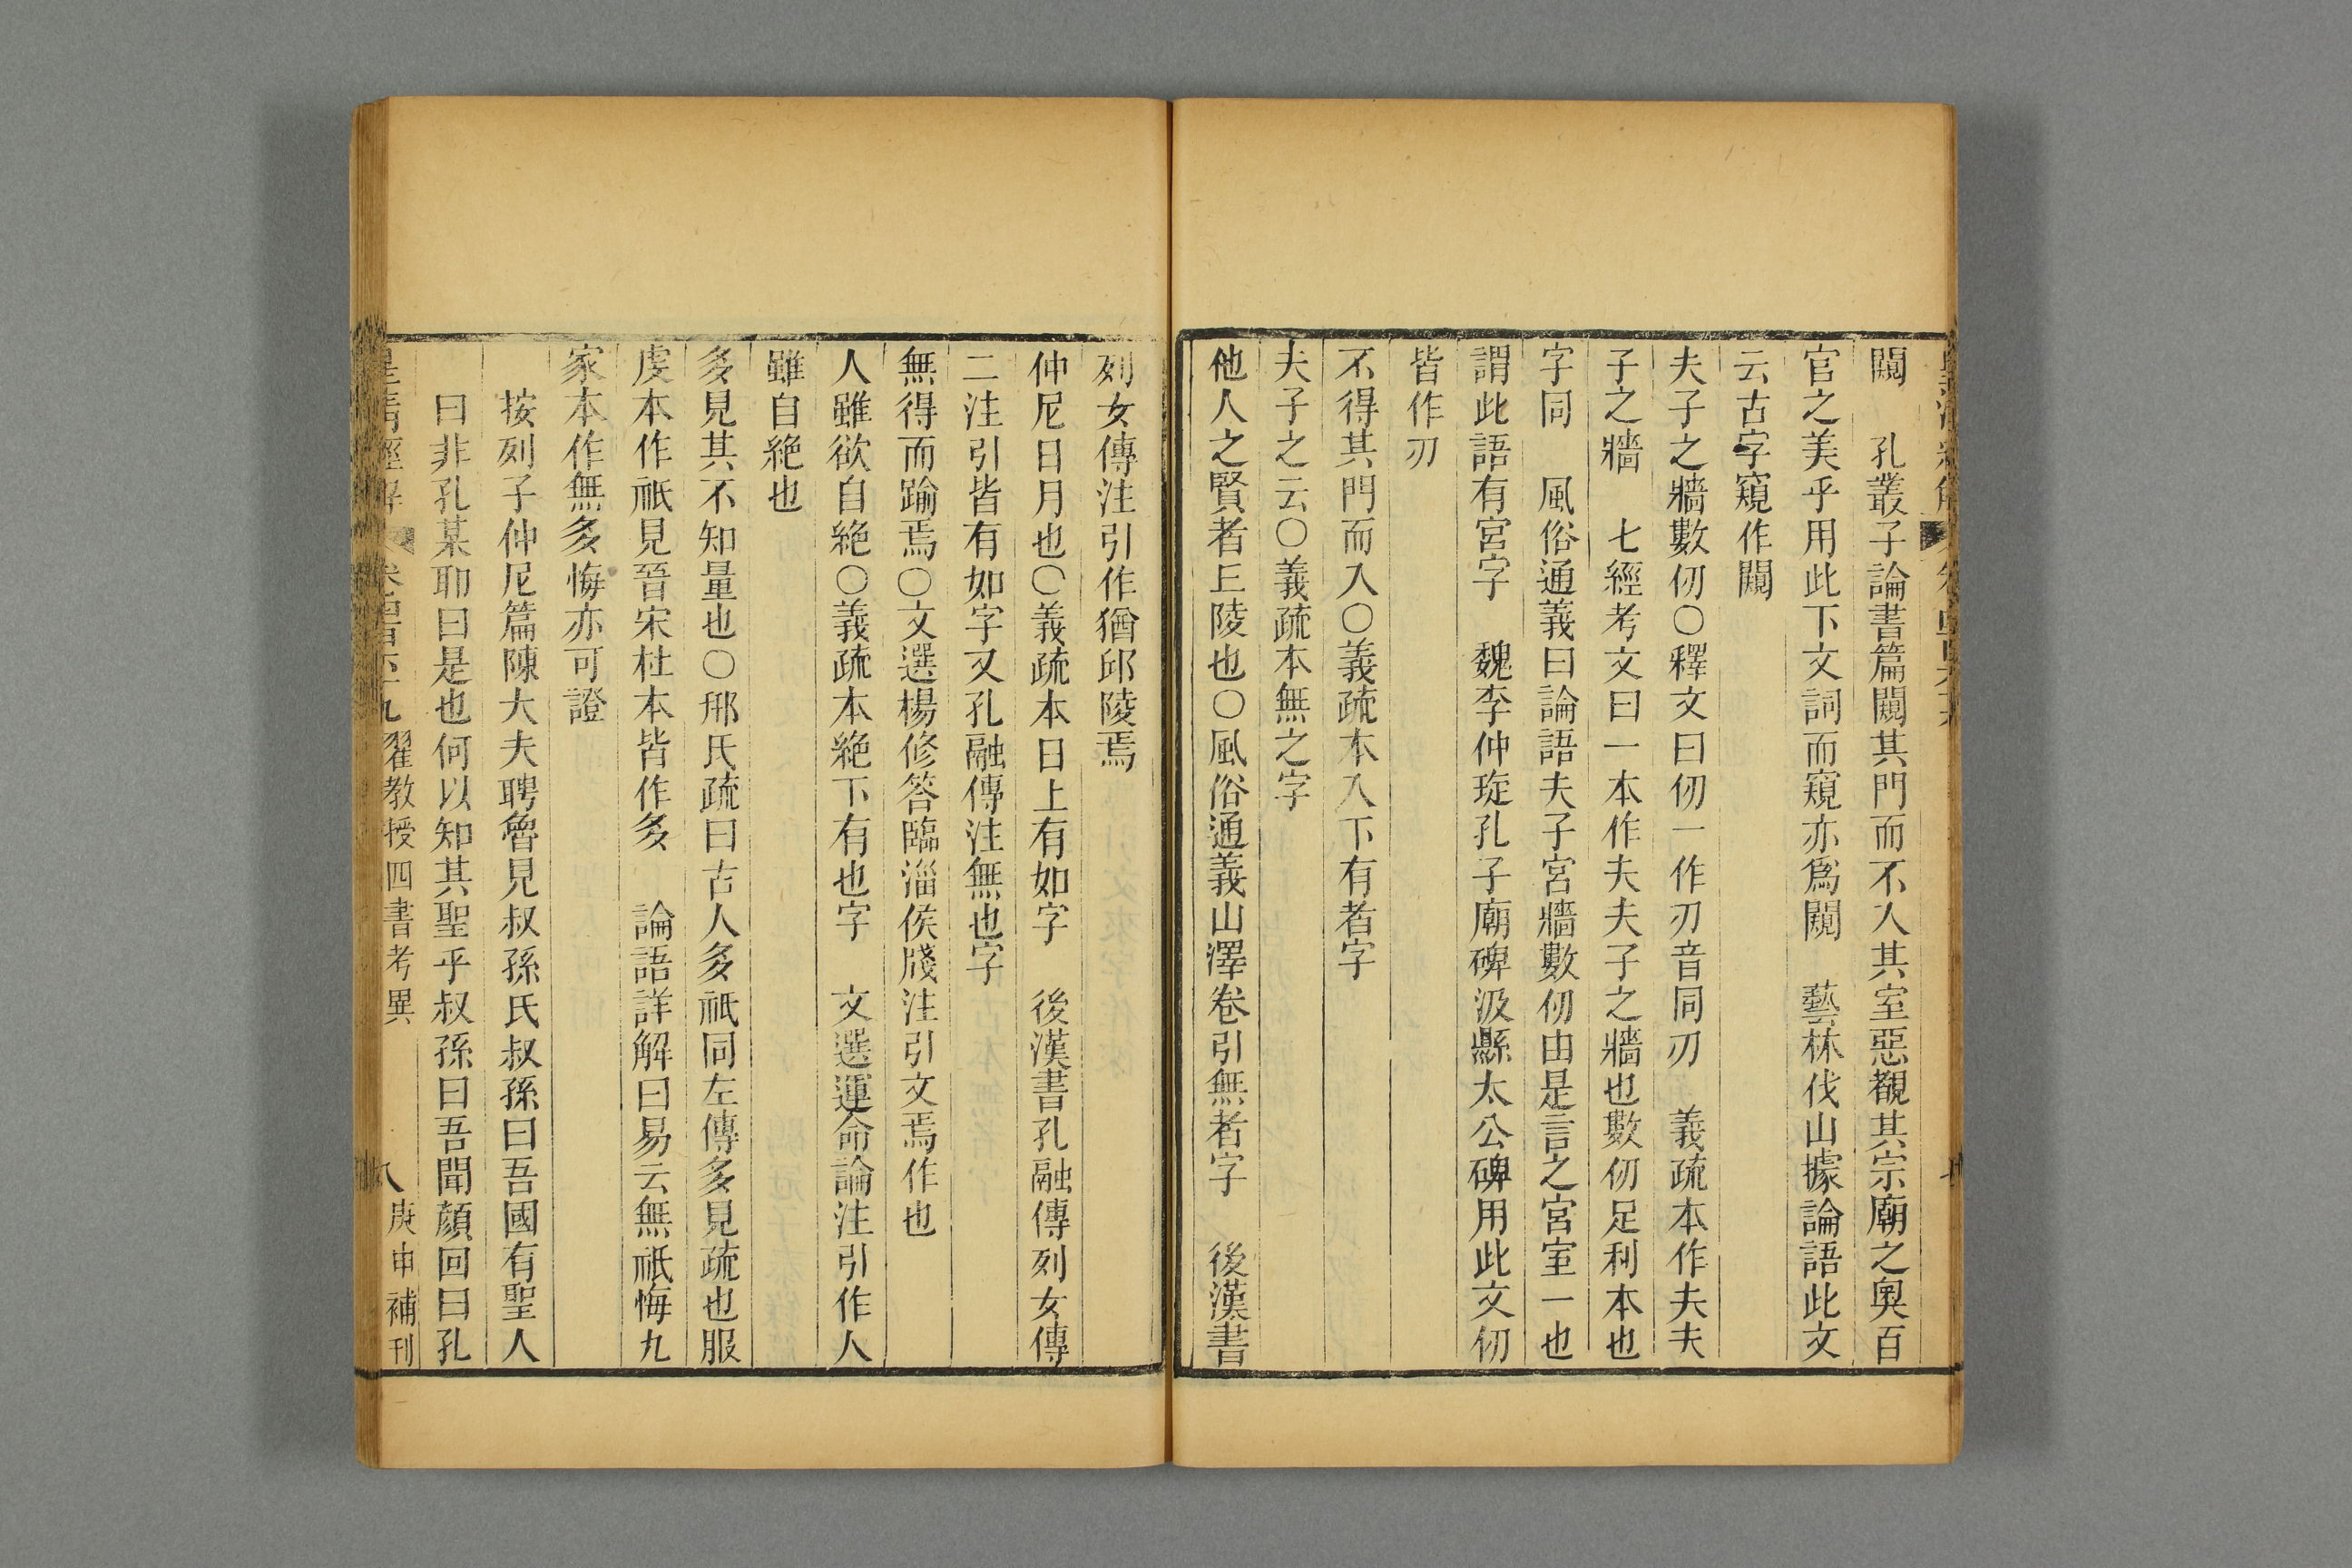 闚　孔叢子論書篇闚其門而不入其室惡覩其宗廟之奧百
官之美乎用此下文詞而窺亦爲闚　藝林伐山據論語此文
云古字窺作闚
夫子之牆數仞○釋文曰仞一作刃音同刃　義疏本作夫夫
子之牆　七經考文曰一本作夫夫子之牆也數仞足利本也
字同　風俗通義曰論語夫子宮牆數仞由是言之宮室一也
謂此語有宮字　魏李仲琁孔子廟碑汲縣太公碑用此文仞
皆作刃
不得其門而入○義疏本入下有者字
夫子之云○義疏本無之字
他人之賢者丘陵也○風俗通義山澤卷引無者字　後漢書
列女傳注引作猶邱陵焉
仲尼日月也○義疏本日上有如字　後漢書孔融傳列女傳
二注引皆有如字又孔融傳注無也字
無得而踰焉○文選楊修答臨淄侯牋注引文焉作也
人雖欲自絶○義疏本絶下有也字　文選運命論注引作人
雖自絶也
多見其不知量也○邢氏疏曰古人多祇同左傳多見疏也服
虔本作祇見晉宋杜本皆作多　論語詳解曰易云無祇悔九
家本作無多悔亦可證
按列子仲尼篇陳大夫聘魯見叔孫氏叔孫曰吾國有聖人
曰非孔某耶曰是也何以知其聖乎叔孫曰吾聞顔回曰孔
皇清經解　九　翟教授四書考異　八　庚申補刊